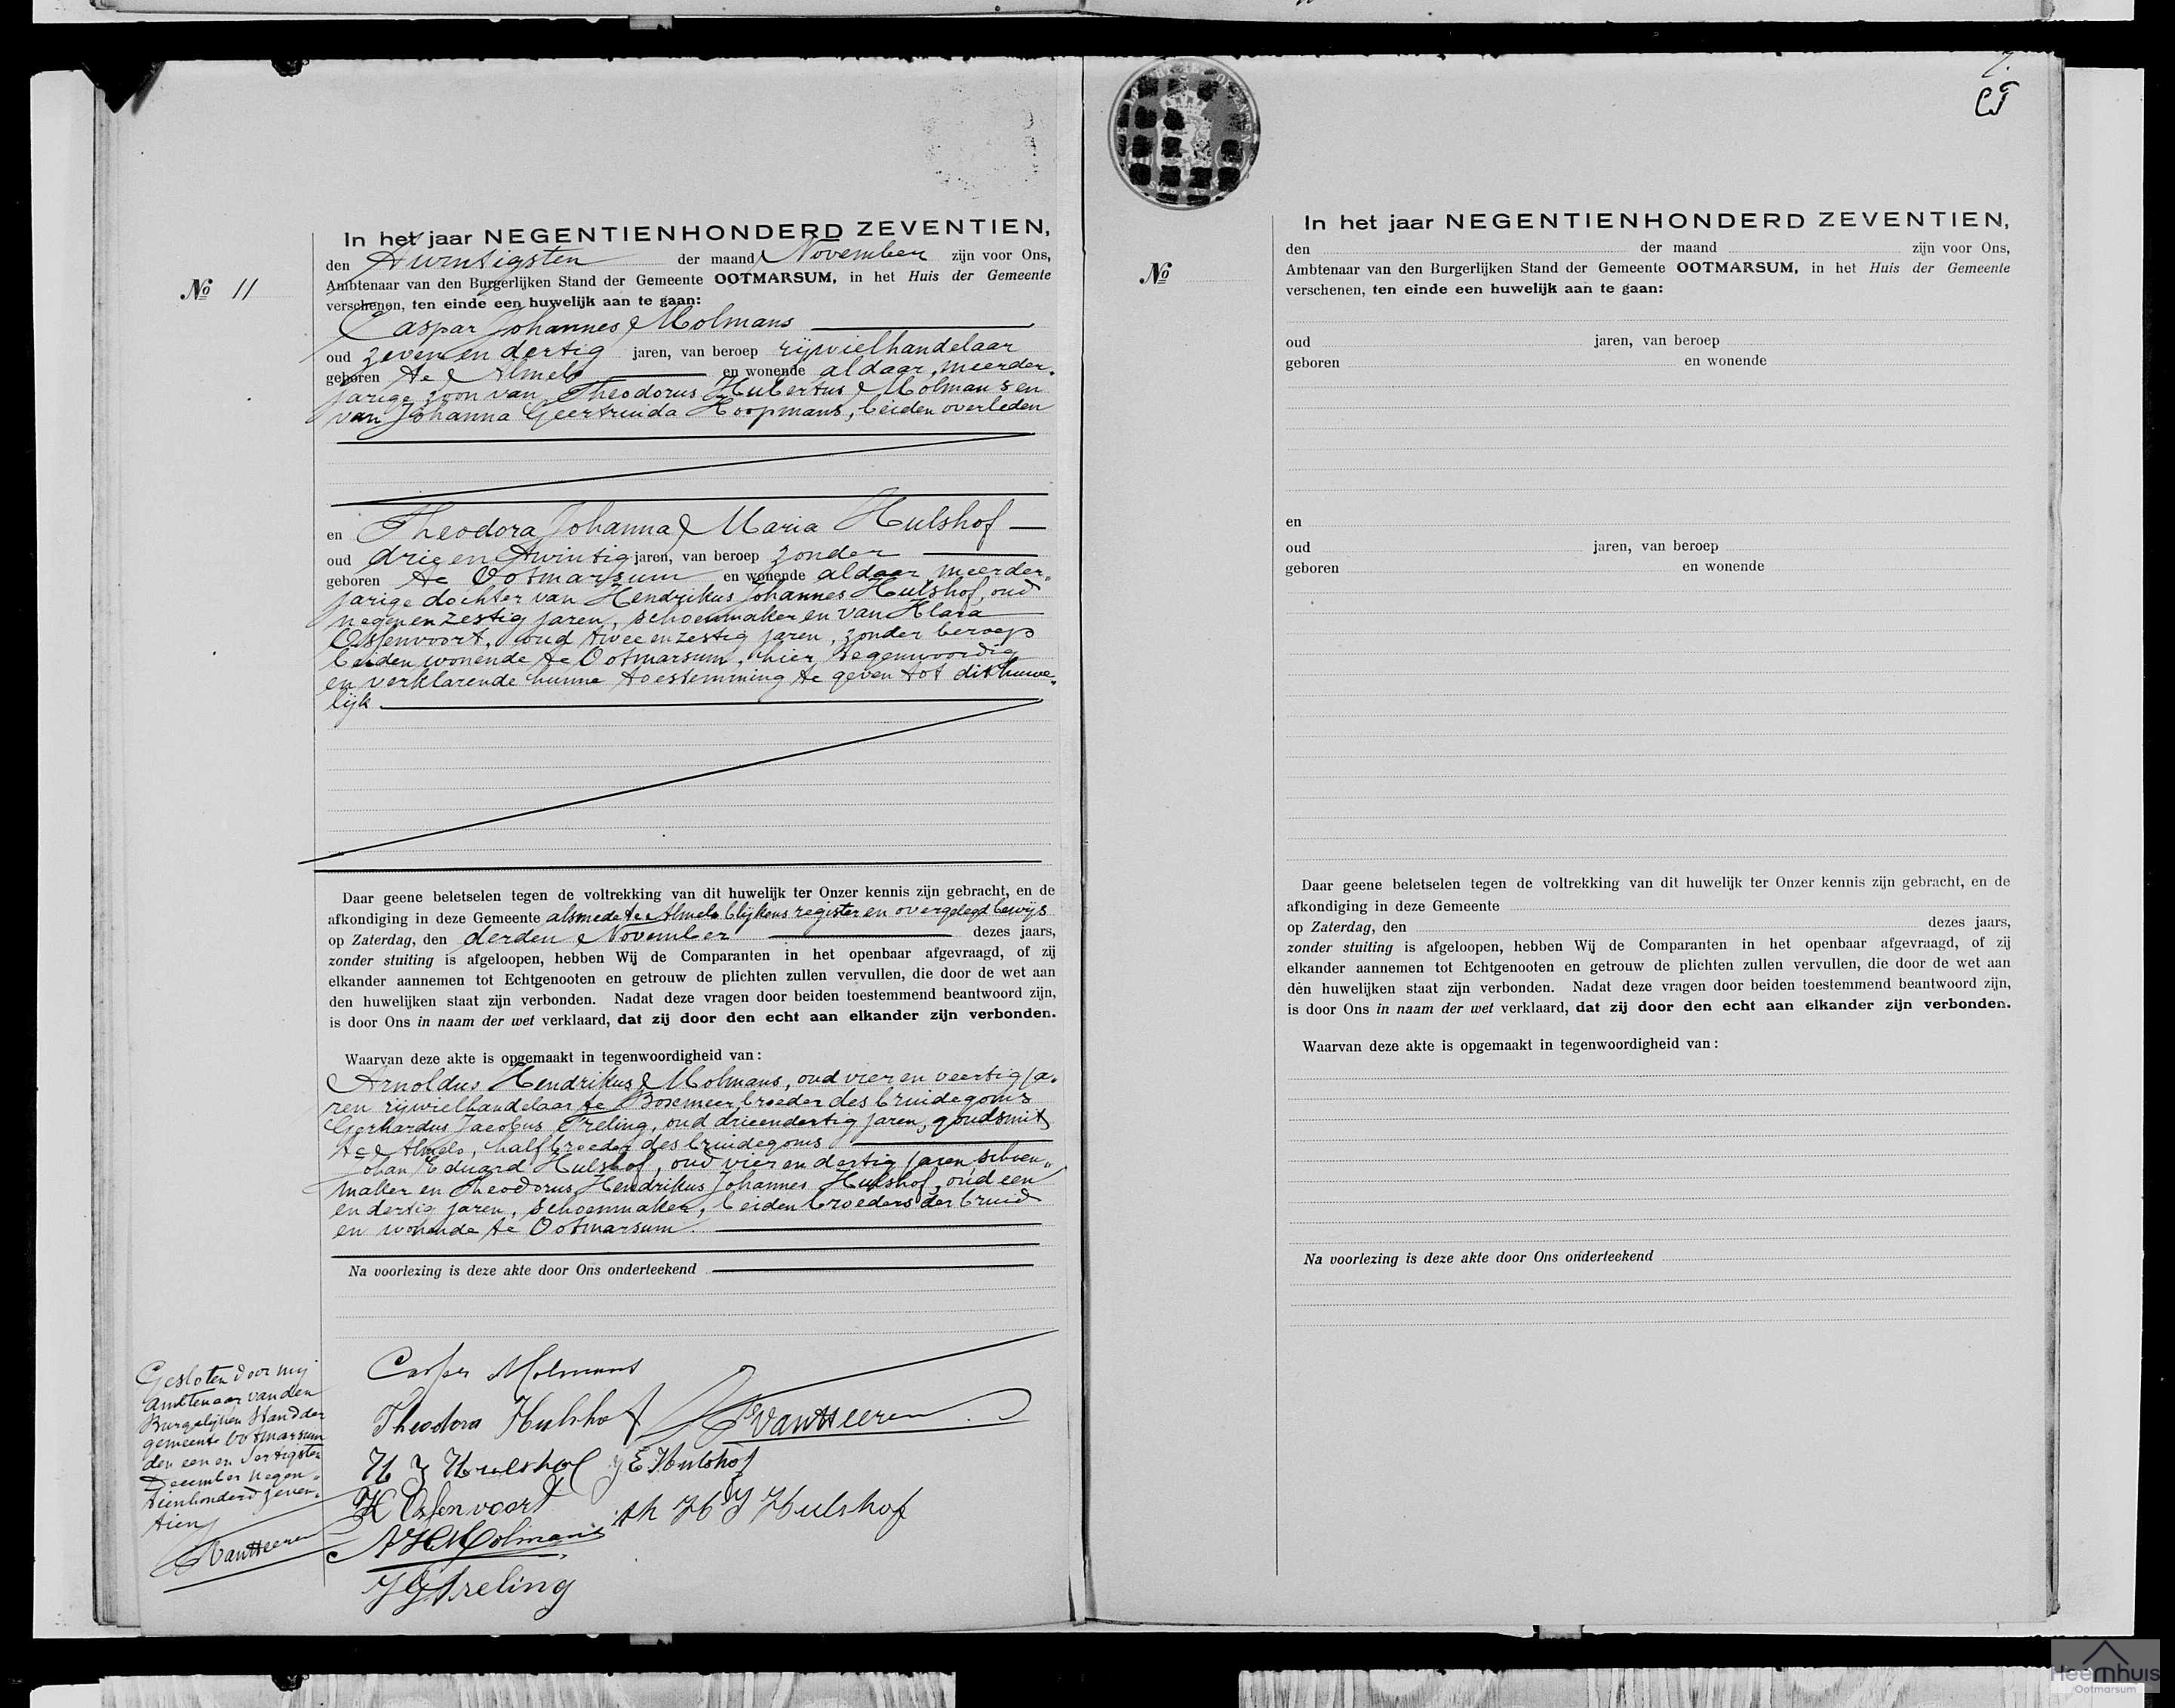 In het jaar NEGENTIENHONDERD ZEVENTIEN,
den Twintigsten der maand November zijn voor Ons,
Nº 11
Ambtenaar van den Burgerlijken Stand der Gemeente OOTMARSUM, in het Huis der Gemeente
verschenen, ten einde een huwelijk aan te gaan:
Caspar Johannes Molmans
oud zeven en dertig jaren, van beroep rijwielhandelaar
geboren te Almelo en wonende aldaar, meerder„
jarige zoon van Theodorus Hubertus Molmans en
van Johanna Geertruida Koopmans, beiden overleden
en Theodora Johanna Maria Hulshof
oud drie en twintig jaren, van beroep zonder
geboren te Ootmarsum en wonende aldaar meerder„
jarige dochter van Hendrikus Johannes Hulshof, oud
negen en zestig jaren, schoenmaker en van Klara
Ossenvoort, oud twee en zestig jaren, zonder beroep
beiden wonende te Ootmarsum, hier tegenwoordig
en verklarende hunne toestemming te geven tot dit huwe„
lijk
Daar geene beletselen tegen de voltrekking van dit huwelijk ter Onzer kennis zijn gebracht, en de
afkondiging in deze Gemeente alsmede te Almelo blijkens register en overgelegd bewijs
op Zaterdag, den derden November dezes jaars,
zonder stuiting is afgeloopen, hebben Wij de Comparanten in het openbaar afgevraagd, of zij
elkander aannemen tot Echtgenooten en getrouw de plichten zullen vervullen, die door de wet aan
den huwelijken staat zijn verbonden. Nadat deze vragen door beiden toestemmend beantwoord zijn,
is door Ons in naam der wet verklaard, dat zij door den echt aan elkander zijn verbonden.
Waarvan deze akte is opgemaakt in tegenwoordigheid van:
Arnoldus Hendrikus Molmans, oud vier en veertig ja„
ren rijwielhandelaar te Boxmeer broeder des bruidegoms
Gerhardus Jacobus Freling, oud drieendertig jaren, goudsmit
te Almelo, halfbroeder des bruidegoms
Johan Eduard Hulshof, oud vier en dertig jaren schoen„
maker en Theodorus Hendrikus Johannes Hulshof, oud een
en dertig jaren, schoenmaker, beiden broeders der bruid
en wonende te Ootmarsum.
Na voorlezing is deze akte door Ons onderteekend
Casper Molmans
Theodora Hulshof
VanHeeren
H J Hulshof J E Hulshof
K Ossenvoort
Th H J Hulshof
A H Molmans
G J Freling
Gesloten door mij
Ambtenaar van den
Burgelijken Stand der
gemeente Ootmarsum
den een en dertigsten
December negen„
tienhonderd zeven„
tien
VanHeeren
In het jaar NEGENTIENHONDERD ZEVENTIEN,
den der maand zijn voor Ons,
Nº
Ambtenaar van den Burgerlijken Stand der Gemeente OOTMARSUM, in het Huis der Gemeente
verschenen, ten einde een huwelijk aan te gaan:
oud jaren, van beroep
geboren en wonende
en
oud jaren, van beroep
geboren en wonende
Daar geene beletselen tegen de voltrekking van dit huwelijk ter Onzer kennis zijn gebracht, en de
afkondiging in deze Gemeente
op Zaterdag, den dezes jaars,
zonder stuiting is afgeloopen, hebben Wij de Comparanten in het openbaar afgevraagd, of zij
elkander aannemen tot Echtgenooten en getrouw de plichten zullen vervullen, die door de wet aan
den huwelijken staat zijn verbonden. Nadat deze vragen door beiden toestemmend beantwoord zijn,
is door Ons in naam der wet verklaard, dat zij door den echt aan elkander zijn verbonden.
Waarvan deze akte is opgemaakt in tegenwoordigheid van:
Na voorlezing is deze akte door Ons onderteekend
Heemhuis
Ootmarsum